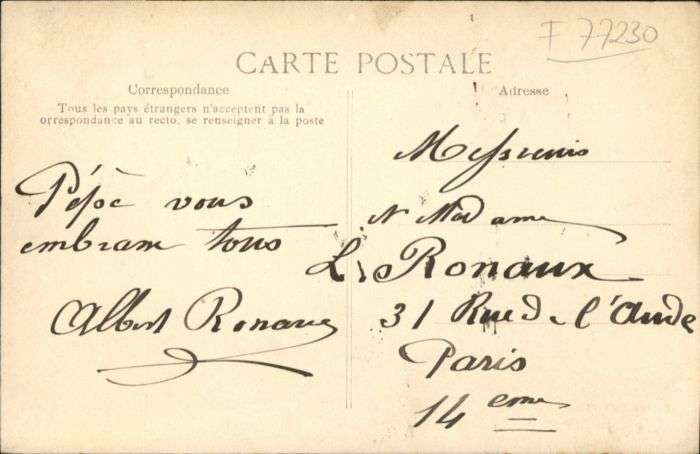 F 77230
CARTE POSTALE
Correspondance
Tous les pays étrangers n'acceptent pas la
orrespondance au recto, se renseigner à la poste
Adresse
Pépè vous
embrasse tous
Albert Ronaux
Messieurs
Madame
L. Ronaux
31 Rue de l'Aude
Paris
14 eme